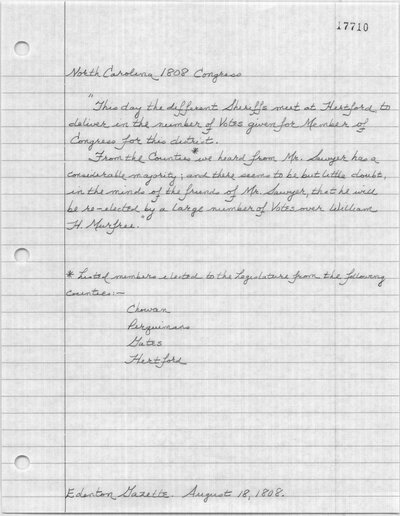 17710
North Carolina 1808 Congress
"This day the different Sheriffs meet at Hertford to
deliver in the number of Votes given for Member of
Congress for this district.
From the Counties * we heard from Mr. Sawyer has a
considerable majority; and there seems to be but little doubt,
in the minds of the friends of Mr. Sawyer, that he will
be re-elected by a large number of Votes over William
H. Murfree."
* Listed members elected to the Legislature from the following
counties:-
Chowan
Perquimans
Gates
Hertford
Edenton Gazette. August 18, 1808.